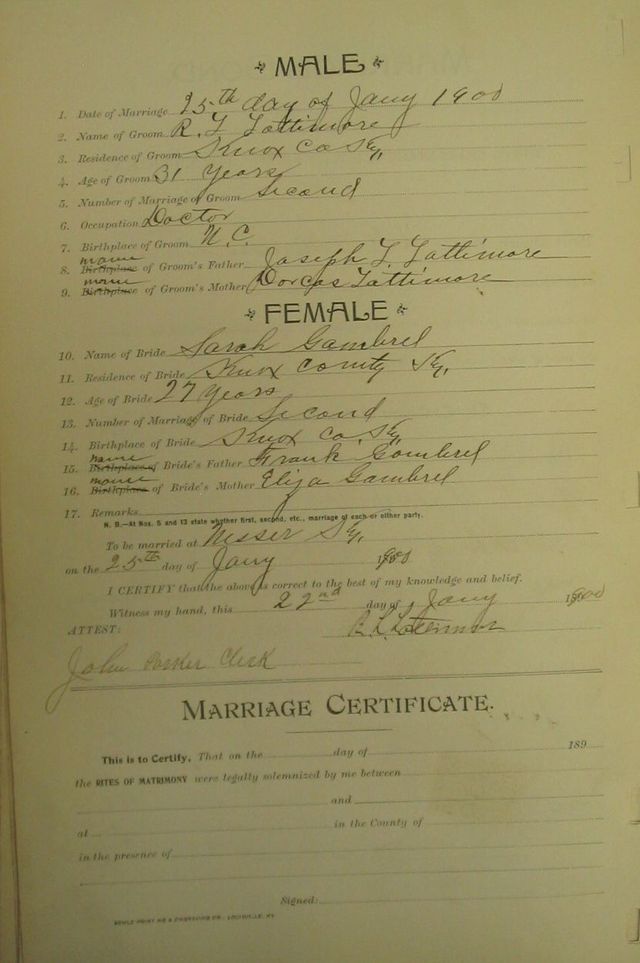 MALE
1. Date of Marriage 25th day of Jany 1900
2. Name of Groom R. L Lattimore
3. Residence of Groom Knox Co Ky,
4. Age of Groom 31 Years
5. Number of Marriage of Groom Second
6. Occupation Doctor
7. Birthplace of Groom N. C.
8. Birthplace name of Groom's Father Joseph L Lattimore
9. Birthplace name of Groom's Mother Dorcas Lattimore
FEMALE
10. Name of Bride Sarah Gambrel
11. Residence of Bride Knox County Ky,
12. Age of Bride 27 Years
13. Number of Marriage of Bride Second
14. Birthplace of Bride Knox Co, Ky,
15. Birthplace of name Bride's Father Frank Gambrel
16. Birthplace name of Bride's Mother Eliza Gambrel
17. Remarks
N. B.—At Nos. 5 and 13 state whether first, second, etc., marriage of each or either party.
To be married at Messer Ky,
on the 25th day of Jany 1900
I CERTIFY that the above is correct to the best of my knowledge and belief.
Witness my hand, this 22nd day of, Jany 1900
ATTEST: R. L. Lattimore
John Parker Clerk
MARRIAGE CERTIFICATE.
This is to Certify, That on the day of 189
the RITES OF MATRIMONY were legally solemnized by me between
and
at in the County of
in the presence of
Signed:
LOUISVILLE, KY